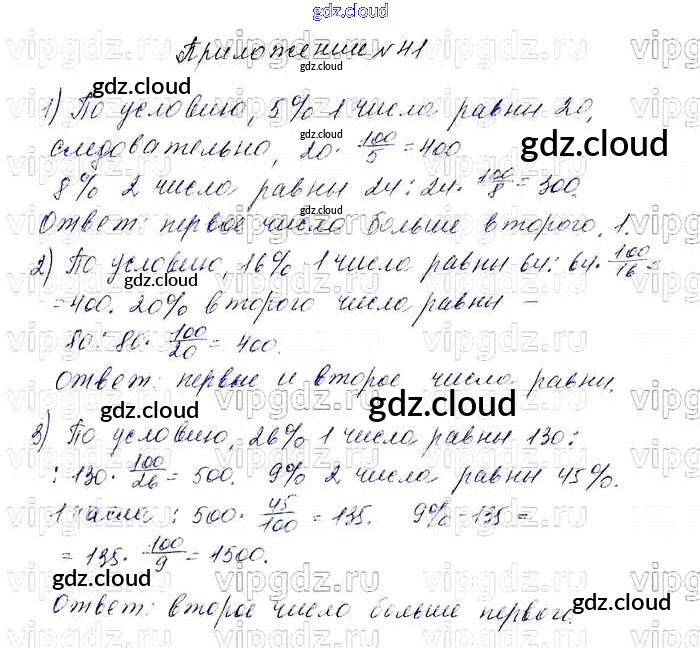 gdz.cloud
Приложение № 41
1) По условию, 5% 1 числа равны 20,
следовательно, 20 · 100/5 = 400
8% 2 числа равны 24: 24 · 100/8 = 300.
Ответ: первое число больше второго. 1.
2) По условию, 16% 1 числа равны 64: 64 · 100/16 =
= 400. 20% второго числа равны –
80: 80 · 100/20 = 400.
Ответ: первые и второе числа равны.
3) По условию, 26% 1 числа равны 130:
: 130 · 100/26 = 500. 9% 2 числа равны 45%.
1 числа: 500 · 45/100 = 135. 9% – 135 =
= 135 · 100/9 = 1500.
Ответ: второе число больше первого.
gdz.cloud
vipgdz.ru